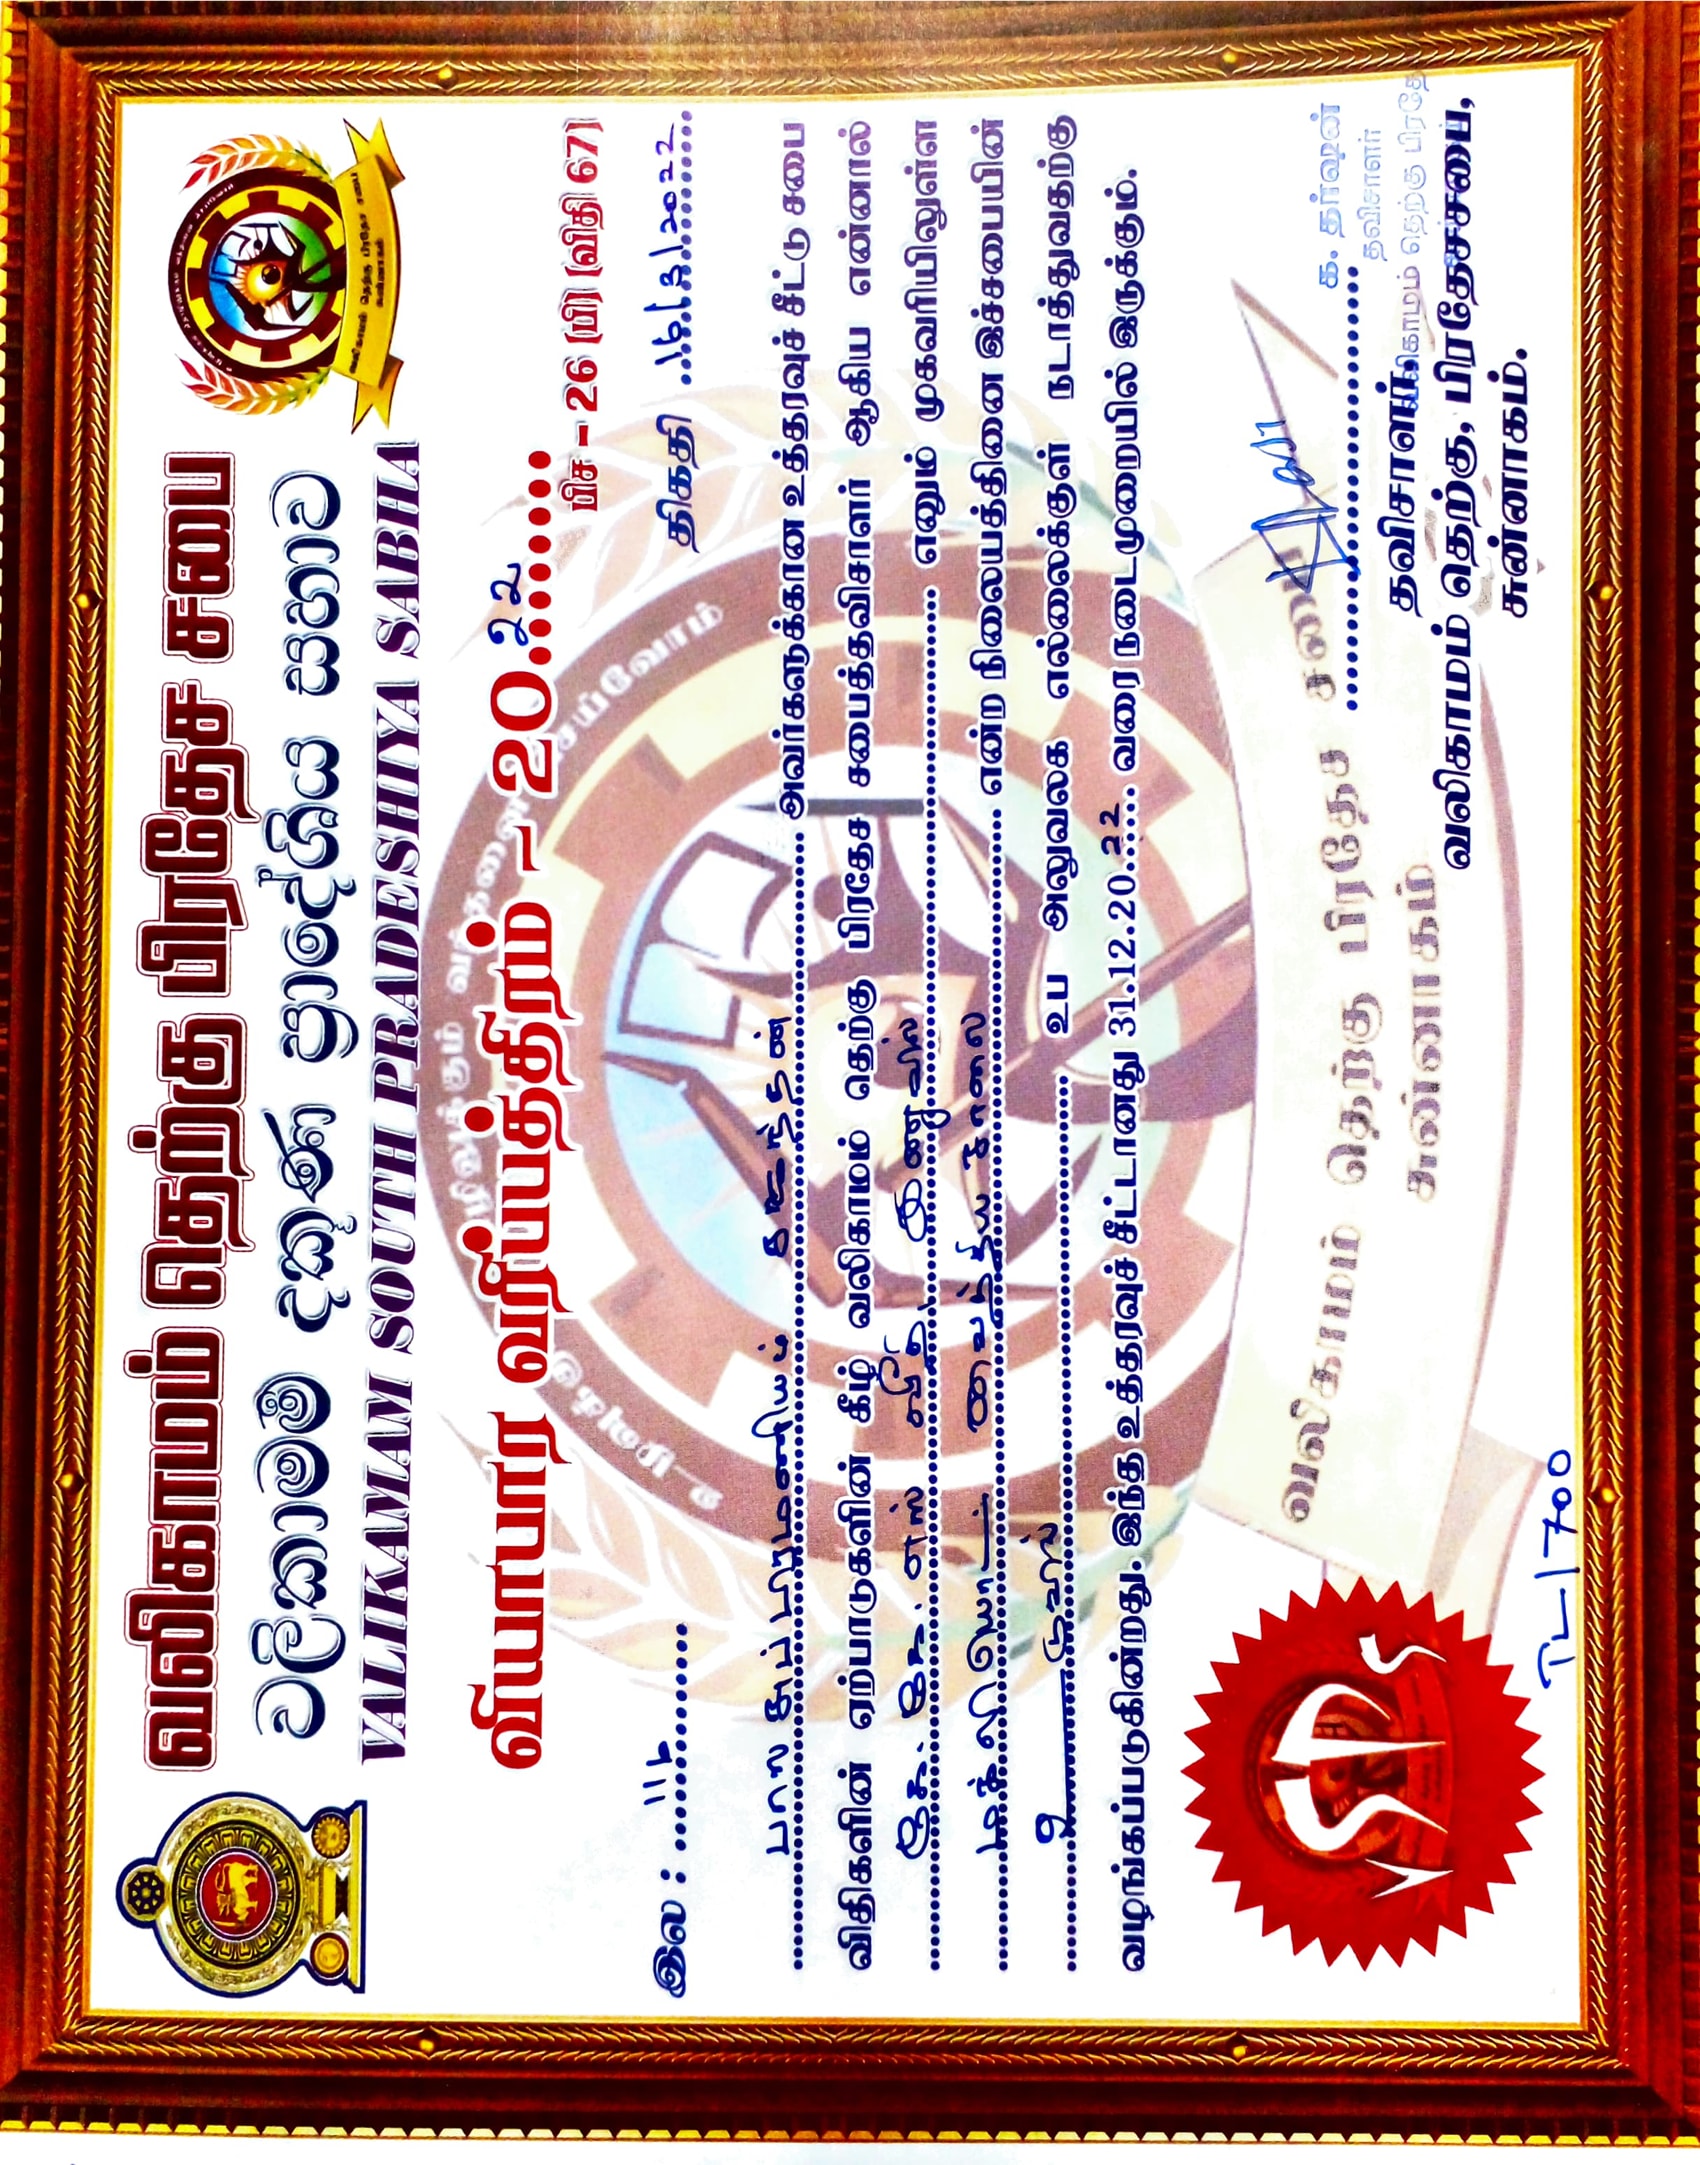 வலிகாமம் தெற்கு பிரதேச சபை
වලිකාමම් දකුණ ප්‍රාදේශීය සභාව
VALIKAMAM SOUTH PRADESHIYA SABHA
வலிகாமம் தெற்கு பிரதேச சபை
சுன்னாகம்
வியாபார வரிப்பத்திரம் - 2022
பிச - 26 (பி) (விதி 67)
இல : 116
திகதி 16/3/2022
பாலசுப்பிரமணியம் அவர்களுக்கான உத்தரவுச் சீட்டு சபை
விதிகளின் ஏற்பாடுகளின் கீழ் வலிகாமம் தெற்கு பிரதேச சபைத்தவிசாளர் ஆகிய என்னால்
கே. கே. எஸ் வீதி, இணுவில் எனும் முகவரியிலுள்ள
மக்லியொட் வைத்தியசாலை என்ற நிலையத்தினை இச்சபையின்
உடுவில் உப அலுவலக எல்லைக்குள் நடாத்துவதற்கு
வழங்கப்படுகின்றது. இந்த உத்தரவுச் சீட்டானது 31.12.2022 வரை நடைமுறையில் இருக்கும்.
வலிகாமம் தெற்கு பிரதேச சபை
சுன்னாகம்
VSPS
க. தர்ஷன்
தவிசாளர்
வலிகாமம் தெற்கு பிரதே
தவிசாளர்,
வலிகாமம் தெற்கு, பிரதேசசபை,
சுன்னாகம்.
TL/700